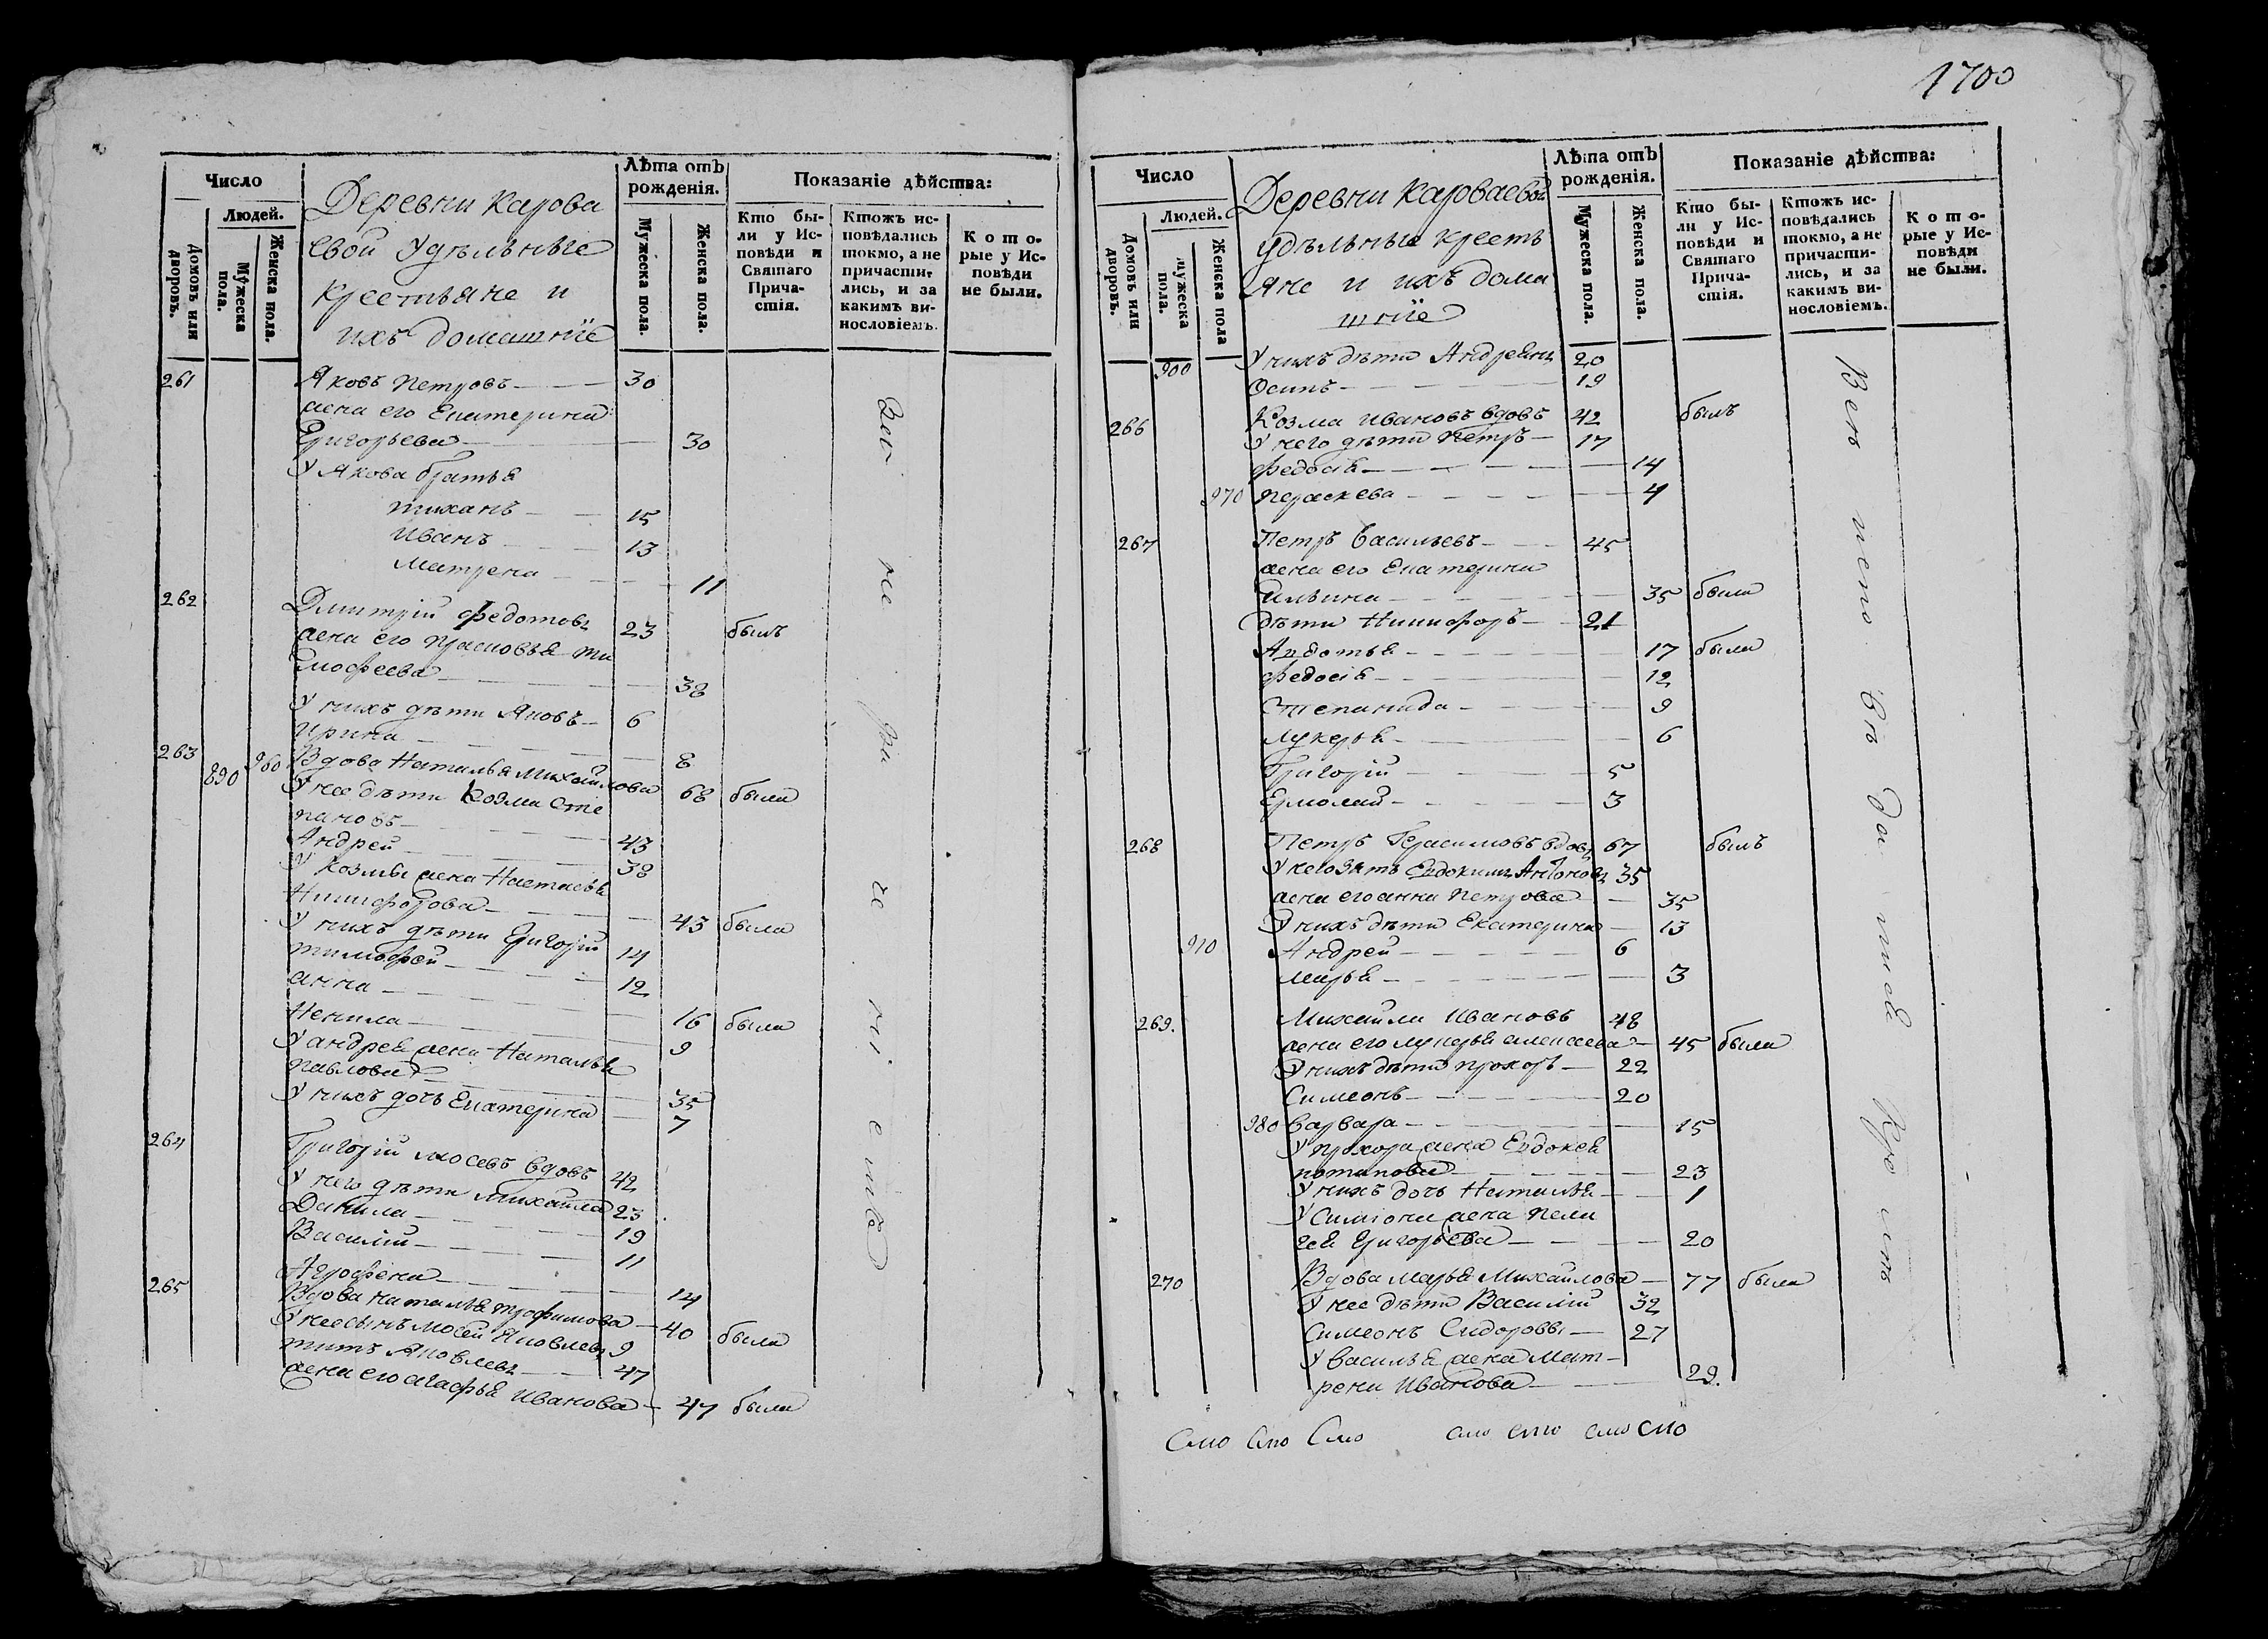 1700
Число
Людей.
Домовъ или дворовъ.
Мужеска пола.
Женска пола.
Деревни Карова
евой Удѣльные
крестьяне и
ихъ домашнїе
Лѣта отъ рожденія.
Мужеска пола.
Женска пола.
Показаніе дѣйства:
Кто были у Исповѣди и Святаго Причастія.
Ктожъ исповѣдались токмо, а не причастились, и за какимъ винословіемъ.
Которые у Исповѣди не были.
261 Яковъ Петровъ 30
жена его Екатерина
Григорьева 30
У Якова братья
Тиханъ 15
Иванъ 13
Матрена 11
262 Дмитрій Федотовъ 23 былъ
жена его Прасковья Ти
мофеева 38
У нихъ дѣти Яковъ 6
Ирина 8
263 890 960 Вдова Наталья Михайлова 68 была
У нее дѣти Козма Сте
пановъ 43
Андрей 38
У Козмы жена Настасья
Никифорова 43 была
У нихъ дѣти Григорій 14
Тимофей 12
Анна 16 была
Ненила 9
У Андрея жена Наталья
Павлова 35
У нихъ дочь Екатерина 7
264 Григорій Мосевъ вдовъ 42
У него дѣти Михайла 23
Данила 19
Василій 11
Агрофена 14
265 Вдова Наталья Трофимова 40 была
У нее сынъ Мосей Яковлевъ 9
Титъ Яковлевъ 47
жена его Агафья Иванова 47 была
Число
Людей.
Домовъ или дворовъ.
Мужеска пола.
Женска пола
Деревни Карваевой
удѣльные кресть
яне и ихъ дома
шнїе
Лѣта отъ рожденія.
Мужеска пола.
Женска пола.
Показаніе дѣйства:
Кто были у Исповѣди и Святаго Причастія.
Ктожъ исповѣдались токмо, а не причастились, и за какимъ винословіемъ.
Которые у Исповѣди не были.
900 У нихъ дѣти Андреянъ 20
Осипъ 19
266 Козма Ивановъ вдовъ 42 былъ
У него дѣти Петръ 17
Федосія 14
970 Пераскева 4
267 Петръ Васильевъ 45
жена его Екатерина
Ильина 35 была
Дѣти Никифоръ 21
Авдотья 17 была
Федосія 12
Степанида 9
Лукерья 6
Григорій 5
Ермолай 3
268 Петръ Герасимовъ вдовъ 67 былъ
У него зять Евдокимъ Антоновъ 35
жена его Анна Петрова 35
У нихъ дѣти Екатерина 13
910 Андрей 6
Марья 3
269. Михайла Ивановъ 48
жена его Лукерья Алексеева 45 была
У нихъ дѣти Прохоръ 22
Симеонъ 20
980 Варвара 15
У Прохора жена Евдокея
Потапова 23
У нихъ дочь Наталья 1
У Симиона жена Пела
гея Григорьева 20
270 Вдова Марья Михайлова 77 была
У нее дѣти Василій 32
Симеонъ Сидоровы 27
У Василья жена Мат-
рена Иванова 29.